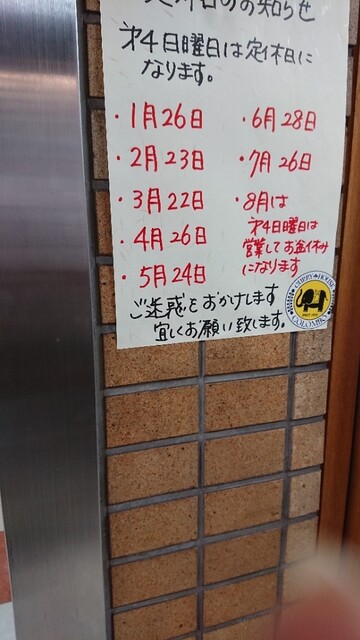 定休日のお知らせ
第4日曜日は定休日に
なります。
・1月26日
・2月23日
・3月22日
・4月26日
・5月24日
・6月28日
・7月26日
・8月は
第4日曜日は
営業してお盆休み
になります
ご迷惑をおかけします
宜しくお願い致します。
CURRY HOUSE
COLOMBO